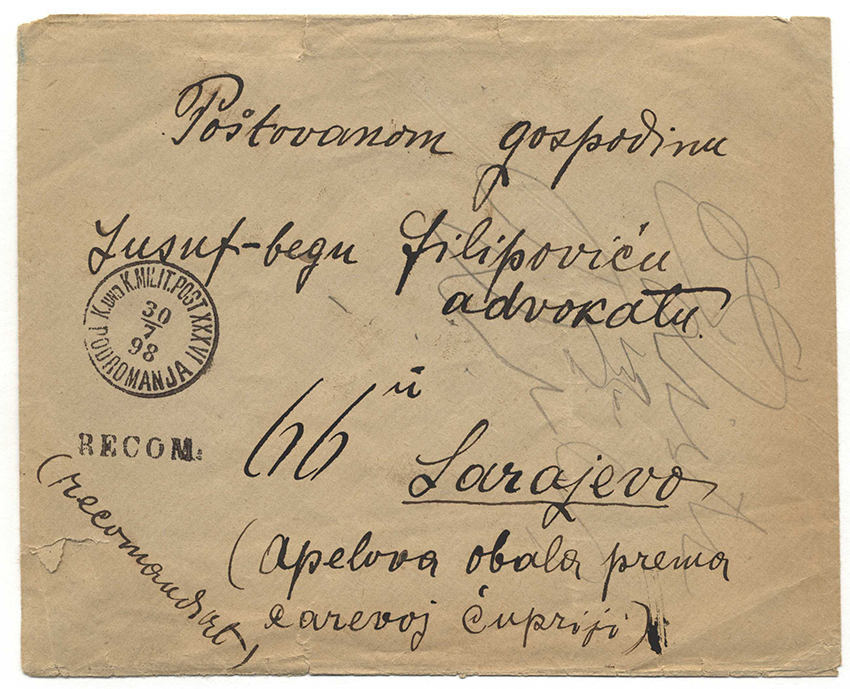 Poštovanom gospodinu
Jusuf-begu Filipoviću
advokatu
K. UND K. MILIT. POST XXXVI
30
7
98
PODROMANJA
RECOM:
66
u
Sarajevo
(recomandirt)
(Apelova obala prema
carevoj ćupriji)